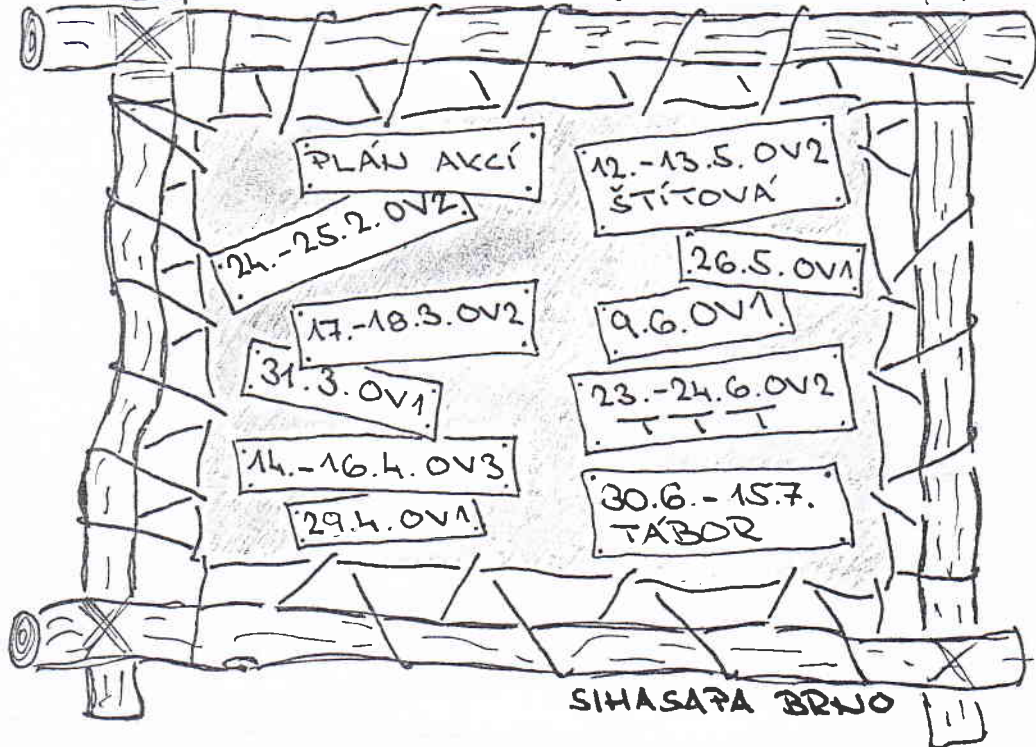 PLÁN AKCÍ
24.-25.2.OV2.
17.-18.3.OV2
31.3.OV1
14.-16.4.OV3
29.4.OV1
12.-13.5.OV2
ŠTÍTOVÁ
26.5.OV1
9.6.OV1
23.-24.6.OV2
T T T
30.6.-15.7.
TÁBOR
SIHASAPA BRNO